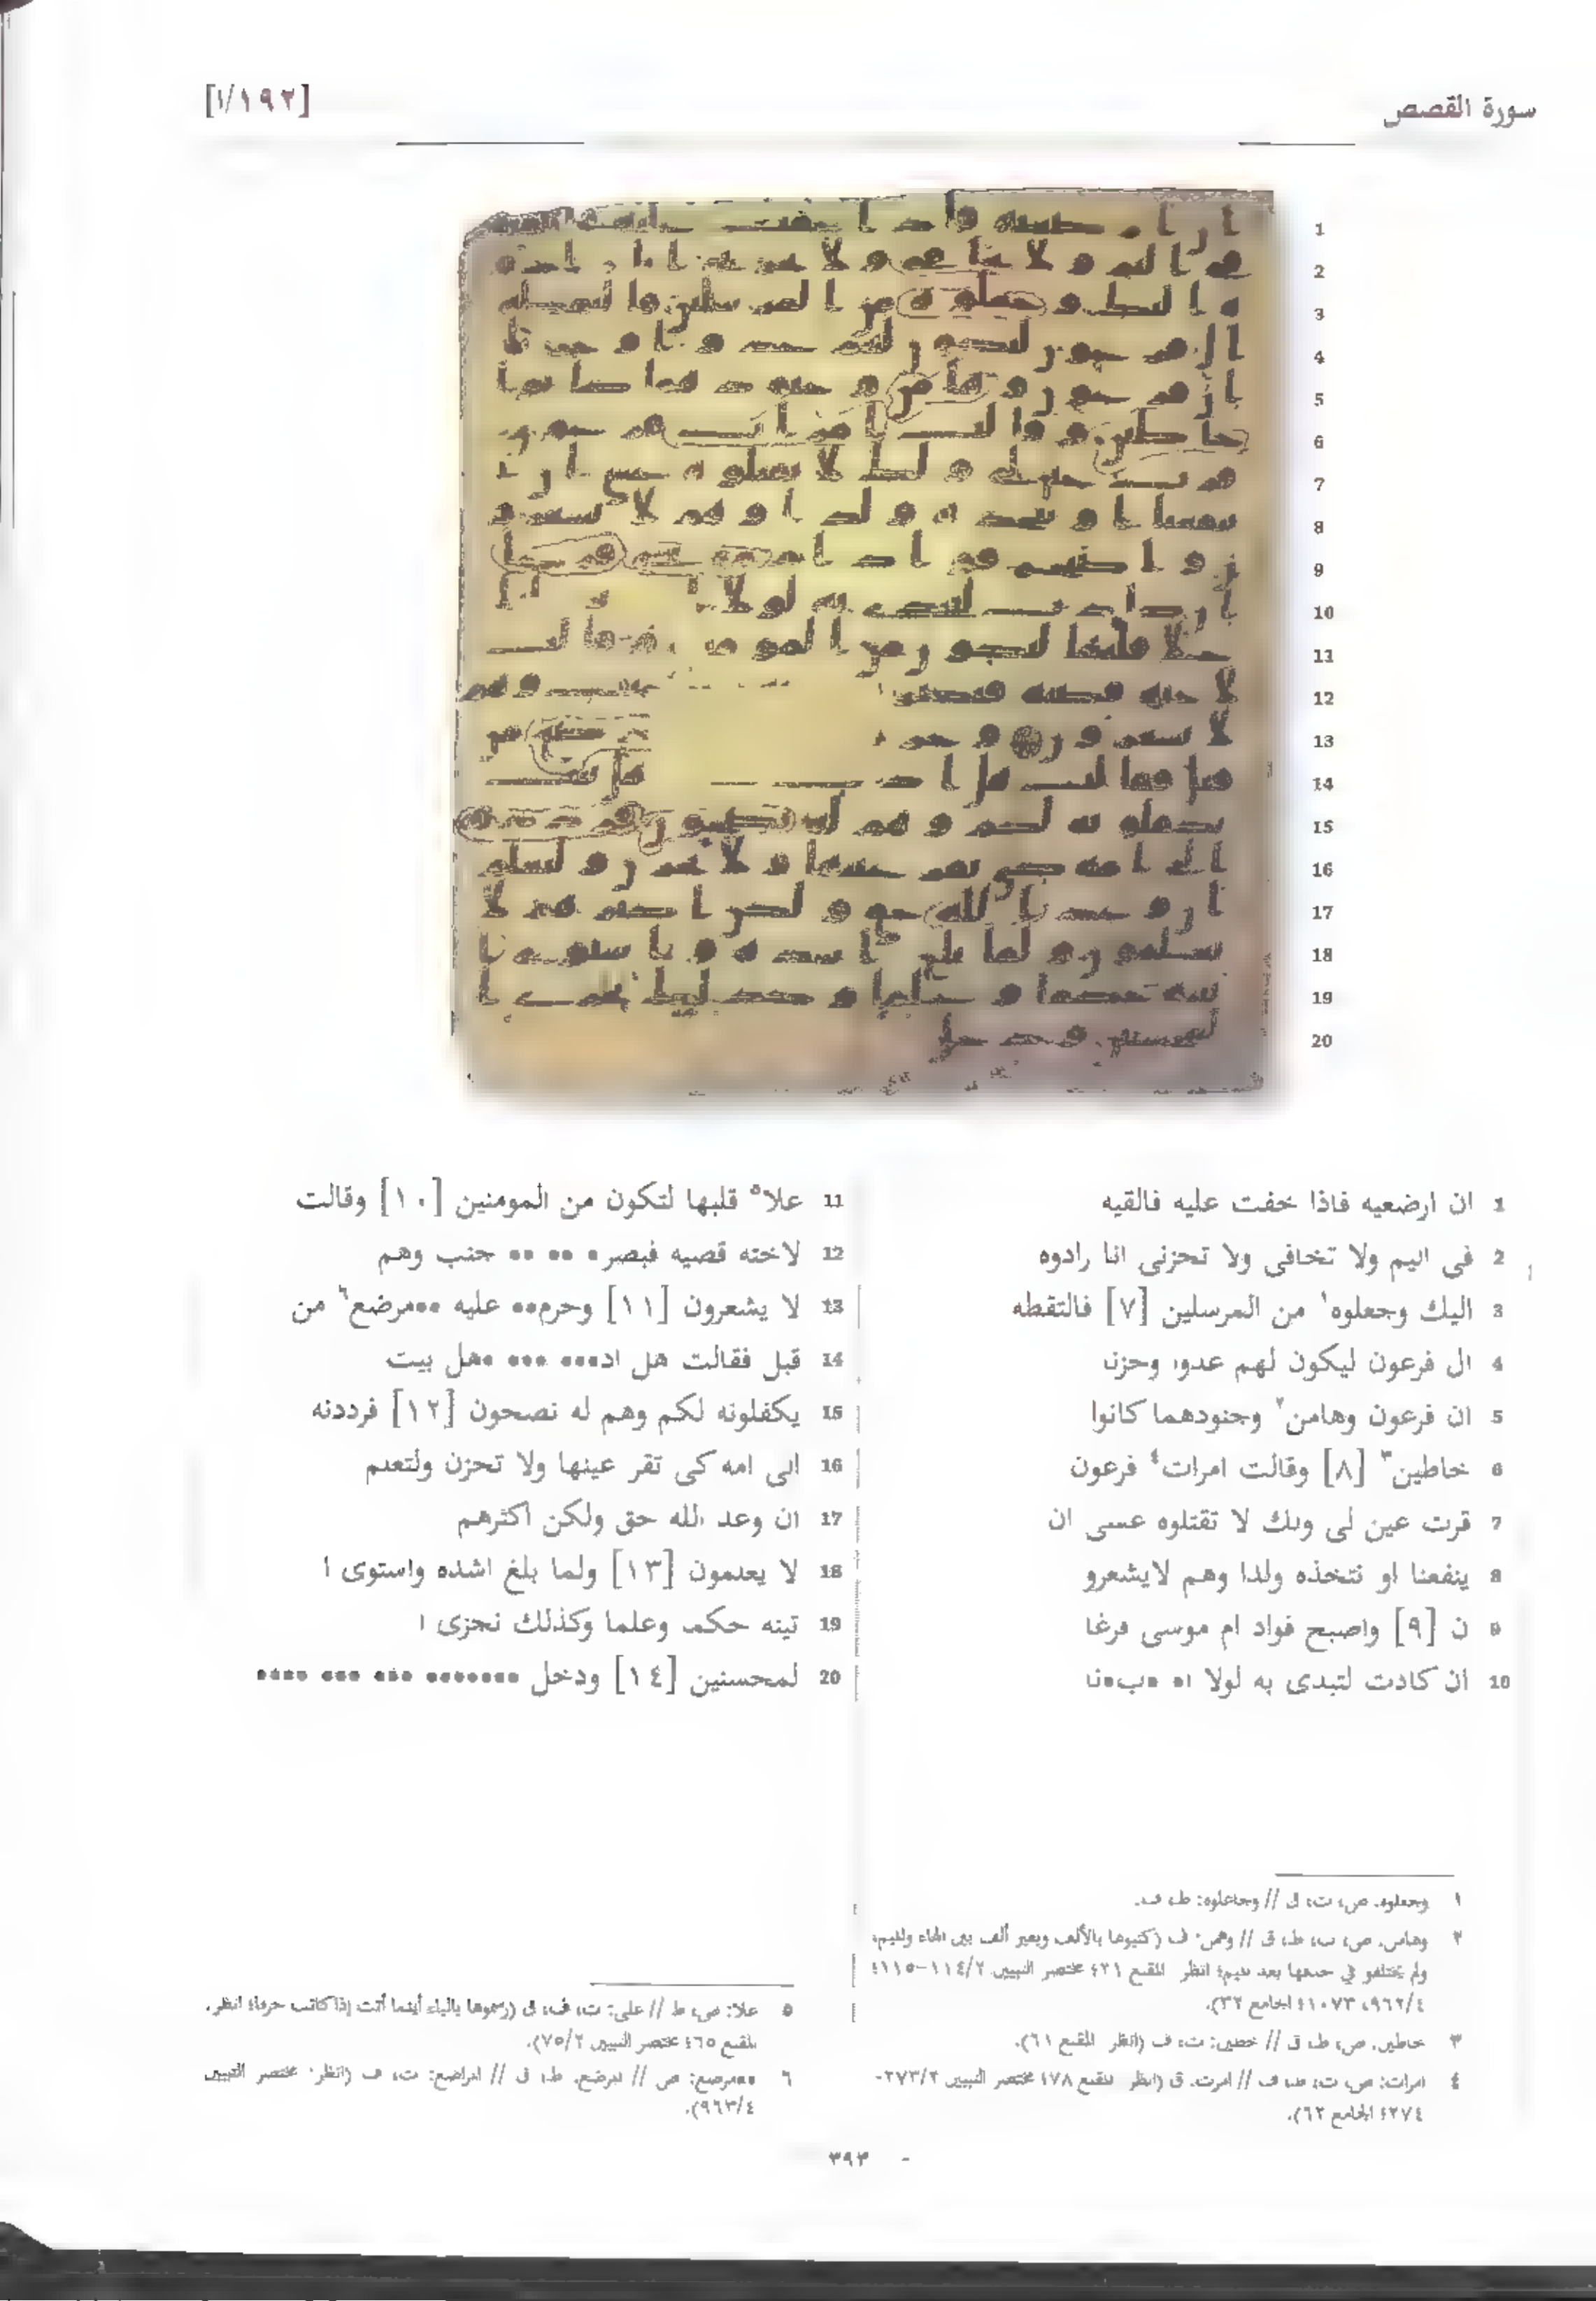 سورة القصص
[١٩٢/ا]
1 ان ارضعيه فاذا خفت عليه فالقيه
2 فى اليم ولا تخافى ولا تحزنى انا رادوه
3 اليك وجعلوه١ من المرسلين [٧] فالتقطه
4 ال فرعون ليكون لهم عدوا وحزنا
5 ان فرعون وهامن٢ وجنودهما كانوا
6 خاطين٣ [٨] وقالت امرات٤ فرعون
7 قرت عين لى ولك لا تقتلوه عسى ان
8 ينفعنا او نتخذه ولدا وهم لايشعرو
9 ن [٩] واصبح فواد ام موسى فرغا
10 ان كادت لتبدى به لولا ا• •ب•نا
11 علا٥ قلبها لتكون من المومنين [١٠] وقالت
12 لاخته قصيه فبصر• •• •• جنب وهم
13 لا يشعرون [١١] وحرم•• عليه ••مرضع٦ من
14 قبل فقالت هل اد••• ••• •هل بيت
15 يكفلونه لكم وهم له نصحون [١٢] فرددنه
16 الى امه كى تقر عينها ولا تحزن ولتعلم
17 ان وعد الله حق ولكن اكثرهم
18 لا يعلمون [١٣] ولما بلغ اشده واستوى ا
19 تينه حكما وعلما وكذلك نجزى ا
20 لمحسنين [١٤] ودخل ••••••• ••• ••• ••••
١ وجعلوه: ص، ت، ق // وجاعلوه: ط، ف.
٢ وهامن: ص، ت، ط، ق // وهمن: ف (كتبوها بالألف وبغير ألف بين الهاء والميم،
ولم يختلفو في حذفها بعد الميم؛ انظر المقنع ٢١؛ مختصر التبيين ١١٤/٢-١١٥؛
٩٦٢/٤، ١٠٧٣؛ الجامع ٣٢).
٣ خاطين: ص، ط، ق // خطين: ت، ف (انظر المقنع ٦١).
٤ امرات: ص، ت، ط، ف // امرت: ق (انظر المقنع ٧٨؛ مختصر التبيين ٢٧٣/٢-
٢٧٤؛ الجامع ٦٢).
٥ علا: ص، ط // على: ت، ف، ق (رسموها بالياء أينما أتت إذا كانت حرفا؛ انظر.
المقنع ٦٥؛ مختصر التبيين ٧٥/٢).
٦ ••مرضع: ص // المرضع: ط، ق // المراضع: ت، ف (انظر: مختصر التبيين
٩٦٣/٤).
٣٩٣